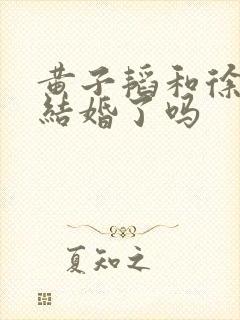 黄子韬和徐
結婚了吗
夏知之